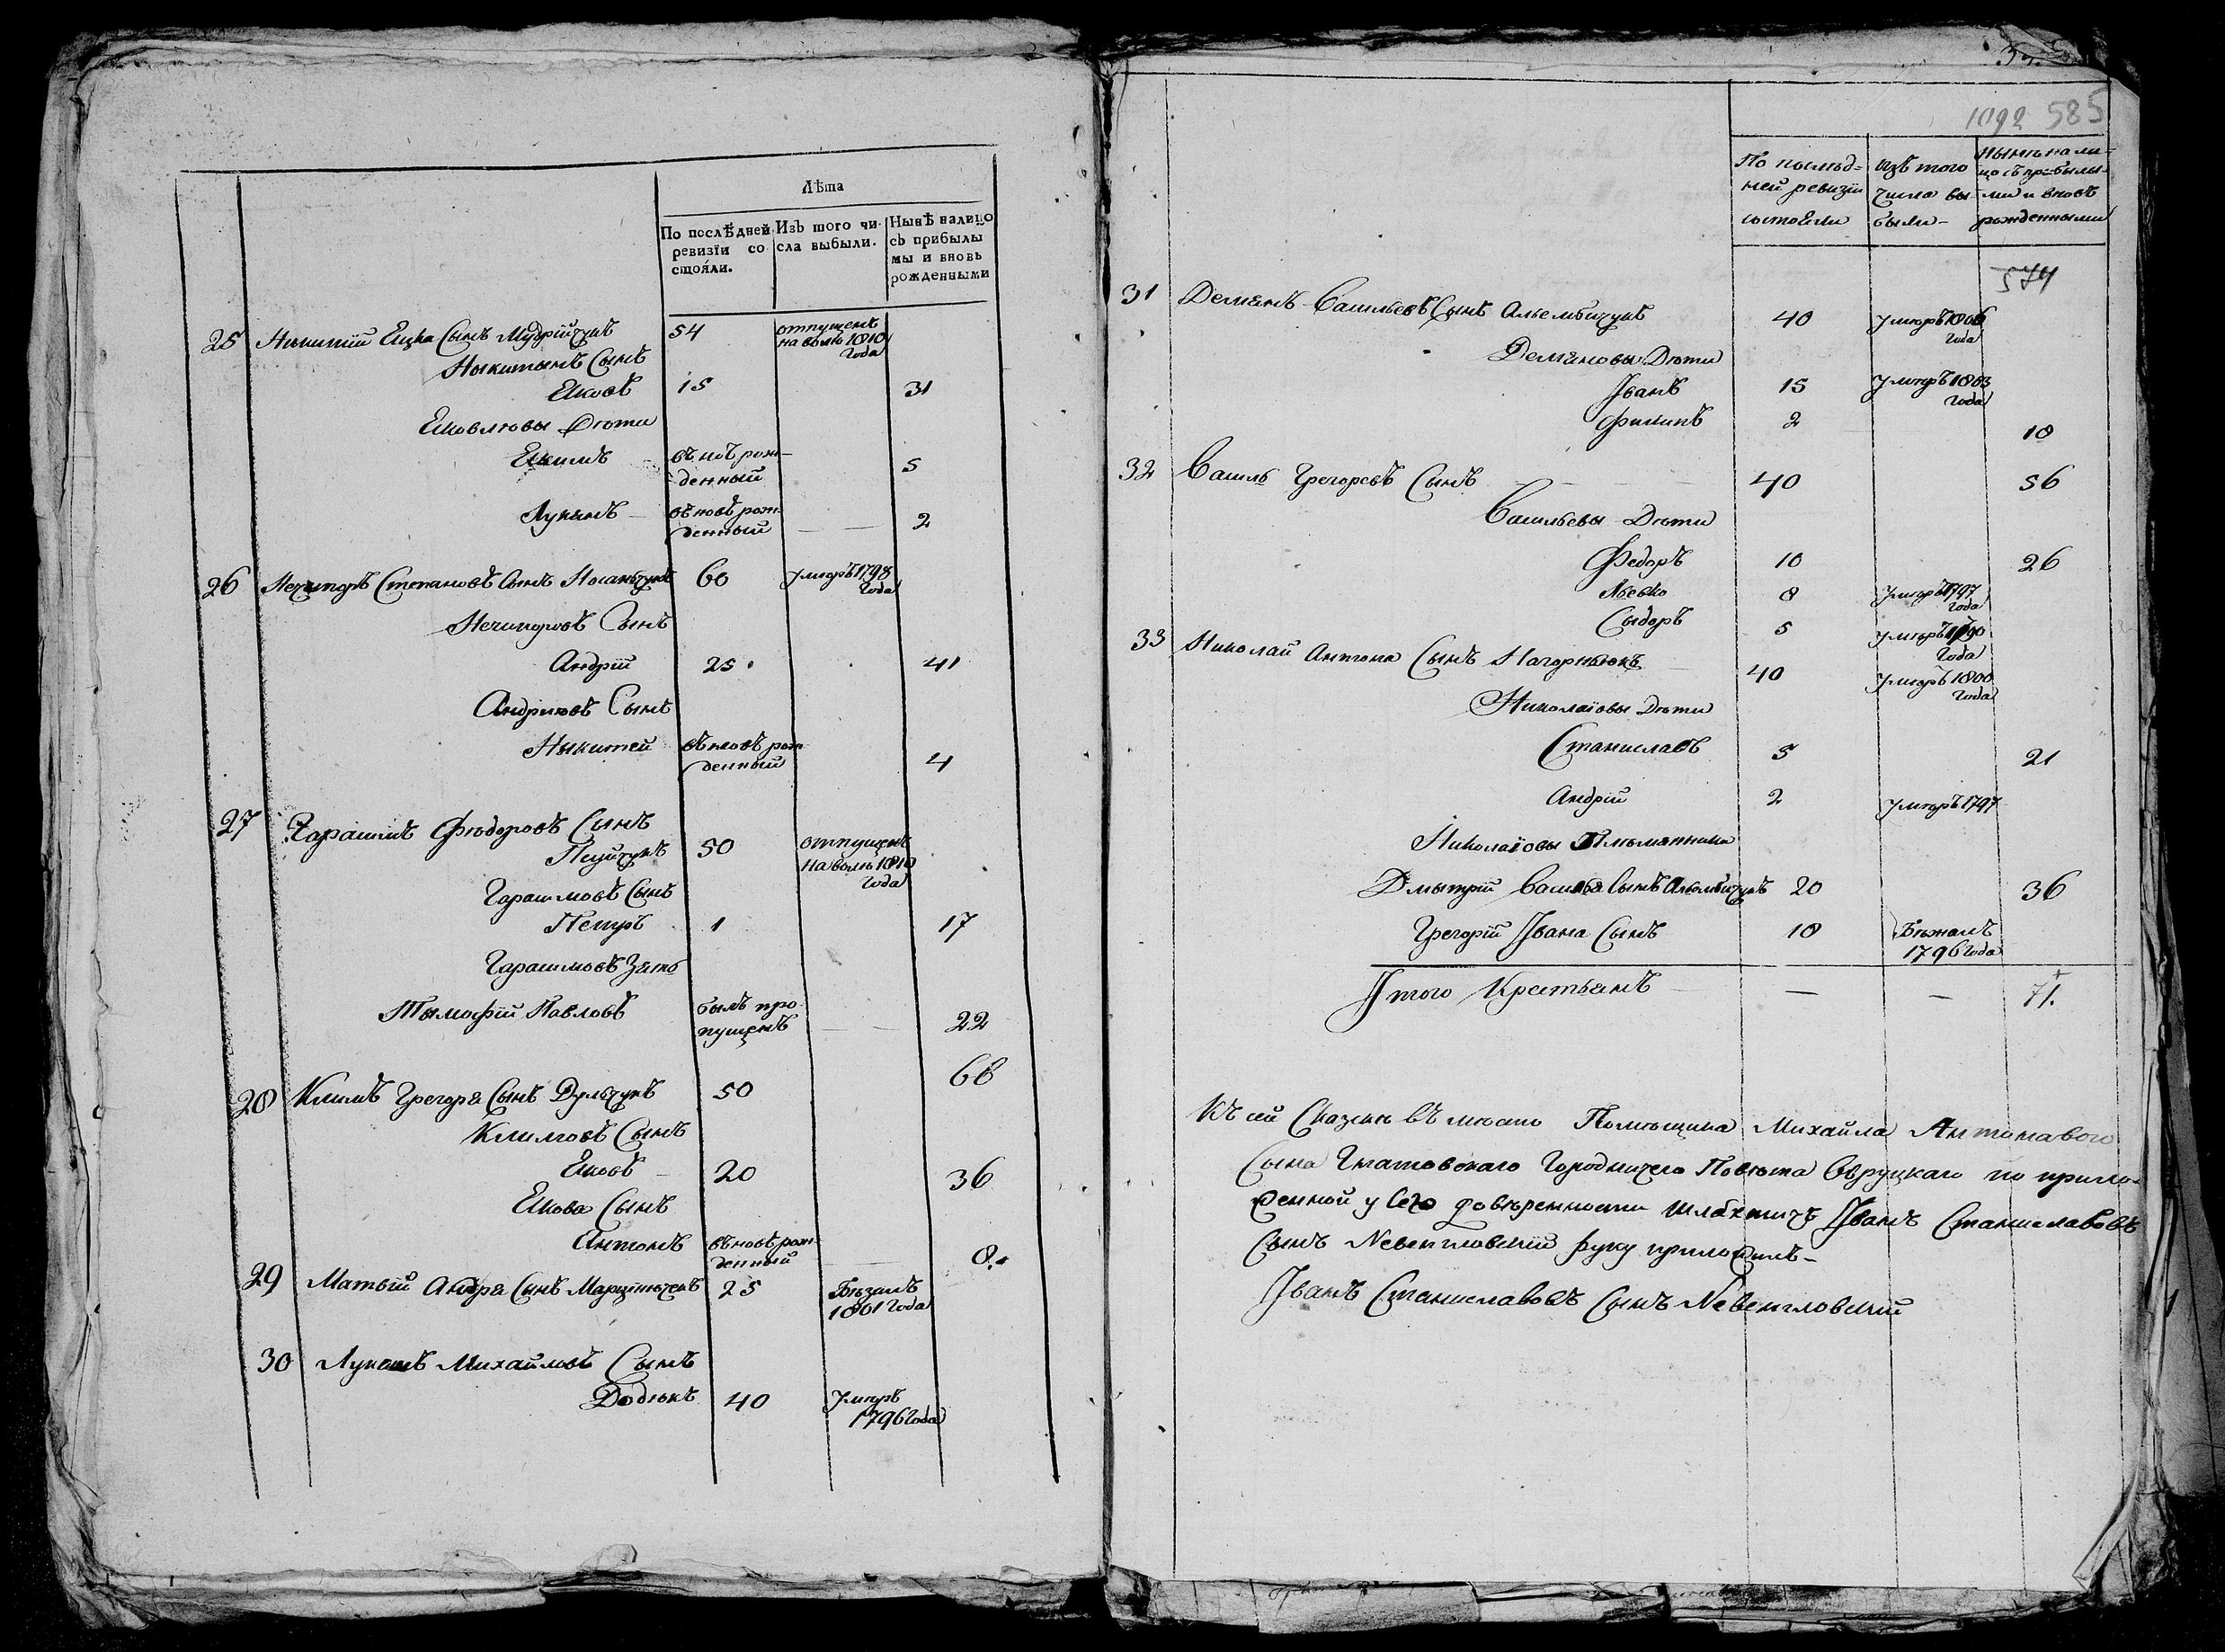 Лѣта
По послѣдней ревизїи состояли.
Изъ того числа выбыли.
Нынѣ налицо съ прибылы мы и вновь рожденными
25 Никитїй Ецка Сынъ Мудрійчукъ 54 отпущенъ на волю 1810 Года
Никитынъ Сынъ
Яковъ 15 31
Яковлювы Дѣти
Екимъ въновъ рожденный 5
Лукянъ въновъ рожденный 2
26 Нечипоръ Степановъ Сынъ 60 умюръ 1798 Года
Нечипоровъ Сынъ
Андрій 25 41
Андріювъ Сынъ
Никитей въновъ рожденный 4
27 Гарасимъ Фюдоровъ Сынъ
50 отпущенъ на волю 1810 Года
Гарасимовъ Сынъ
Петуръ 1 17
Гарасимовъ Зять
Тымофій Павловъ былъ пропущенъ 22
28 Климъ Грегоря Сынъ Дульчукъ 50 66
Климовъ Сынъ
Яковъ 20 36
Якова Сынъ
Антонъ въновъ рожденный 8
29 Матвій Андрея Сынъ 25 Бѣзалъ 1801 Года
30 Лукашъ Михайловъ Сынъ
Додюкъ 40 Умюръ 1796 Года
1092 585
По послѣдней ревизіи состояли
Изъ того числа выбыли
Нынѣ налицо съ прибылыми и вновъ рожденными
574
31 Демянъ Васильевъ Сынъ 40 Умюръ 1806 Года
Демяновы Дѣти
Іванъ 15 Умюръ 1803 Года
Филипъ 2 18
32 Василь Грегоревъ Сынъ 40 56
Васильевы Дѣти
Федоръ 10 26
Левко 8 Умюръ 1797 Года
Сыдоръ 5 Умюръ Года
33 Николай Антона Сынъ Нагорнюкъ 40 Умюръ 1800 Года
Николаіовы Дѣти
Станиславъ 5 21
Андрій 2 Умюръ 1797
Николаіовы Племянники
Дмытрій Василья Сынъ 20 36
Грегорій Івана Сынъ 18 Бѣжалъ 1796 Года
Ітого Крестьянъ — — 71.
Къ сей Сказки въ мѣсто Помѣщика Михайла Антонавого
Сына Городничего Повѣта Овруцкаго по прило-
женной у Сего довѣренности Шляхтичъ Іванъ Станиславовъ
Сынъ Невенгловскій руку приложилъ
Іванъ Станиславовъ Сынъ Невенгловскій